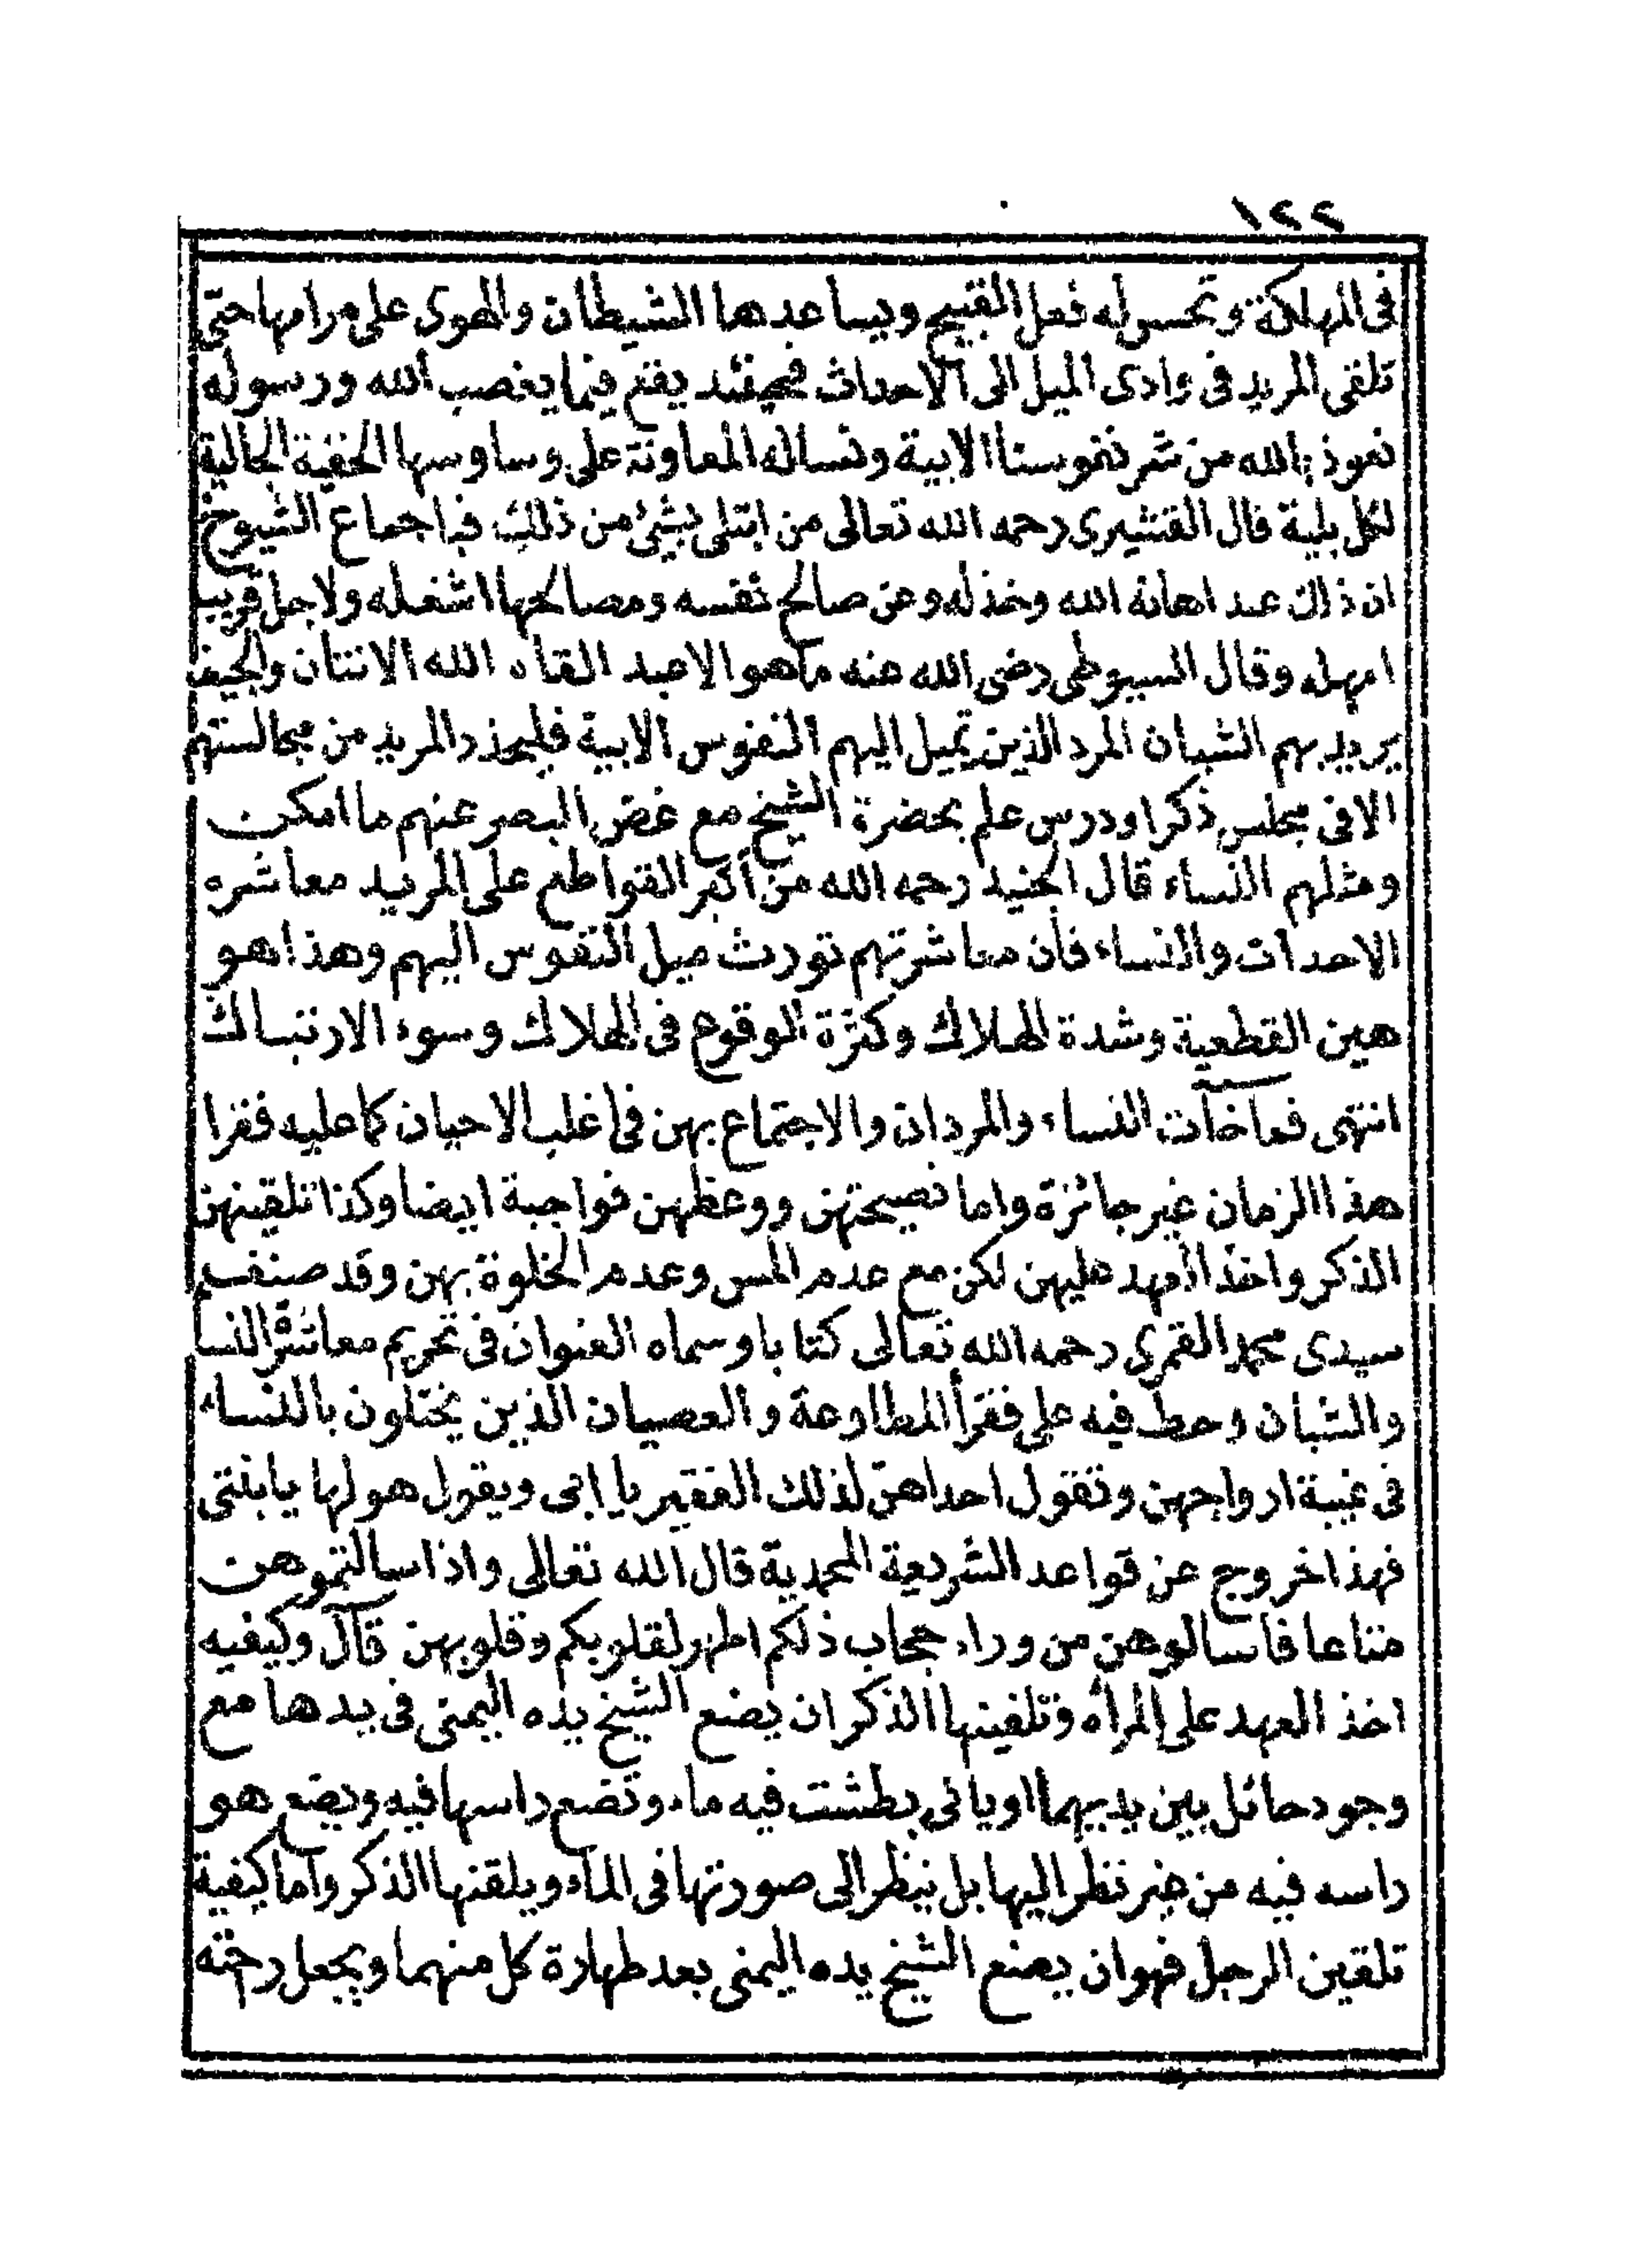 ١٢٢
فى المهلكة وتحسن له فعل القبيح ويساعدها الشيطان والهوى على مرامها حتى
تلقى المريد فى وادى الميل الى الاحداث فحينئذ يقع فيما يغضب الله ورسوله
نعوذ بالله من شر نفوسنا الابية ونساله المعاونة على وساوسها الخفية الجالية
لكل بلية قال القشيرى رحمه الله تعالى من ابتلى بشئ من ذلك فباجماع الشيوخ
ان ذلك عبد اهانه الله وخذله وعن صالح نفسه ومصالحها اشغله ولاجل قريب
امهله وقال السيوطى رضى الله عنه ماهو الا عبد القاه الله الانتان والجيف
يريد بهم الشبان المرد الذين تميل اليهم النفوس الابية فليحذر المريد من مجالستهم
الا فى مجلس ذكر او درس علم بحضرة الشيخ مع غض البصر عنهم ما امكن
ومثلهم النساء قال الجنيد رحمه الله من أكبر القواطع على المريد معاشره
الاحداث والنساء فان معاشرتهم تورث ميل النفوس اليهم وهذا هو
عين القطعية وشدة الهلاك وكثرة الوقوع فى الهلاك وسوء الارتباك
انتهى فمآخات النساء والمردان والاجتماع بهن فى اغلب الاحيان كما عليه فقرا
هذا الزمان غير جائزة واما نصيحتهن ووعظهن فواجبة ايضا وكذا تلقينهن
الذكر واخذ العهد عليهن لكن مع عدم المس وعدم الخلوة بهن وقد صنف
سيدى محمد القمرى رحمه الله تعالى كتابا وسماه العنوان فى تحريم معاشرة النسا
والشبان وحط فيه على فقرأ المطاوعة والعصيان الذين يختلون بالنساء
فى غيبة ازواجهن وتقول احداهن لذلك الفقير يا ابى ويقول هو لها يا بنتى
فهذا خروج عن قواعد الشريعة المحمدية قال الله تعالى واذا سالتموهن
متاعا فاسالوهن من وراء حجاب ذلكم اطهر لقلوبكم وقلوبهن قال وكيفيه
اخذ العهد على المرأه وتلقينها الذكر ان يضع الشيخ يده اليمنى فى يدها مع
وجود حائل بين يديهما او ياتى بطشت فيه ماء وتضع راسها فيه ويضع هو
راسه فيه من غير نظر اليها بل ينظر الى صورتها فى الماء ويلقنها الذكر واما كيفية
تلقين الرجل فهو ان يضع الشيخ يده اليمنى بعد طهارة كل منهما ويجعل رحته